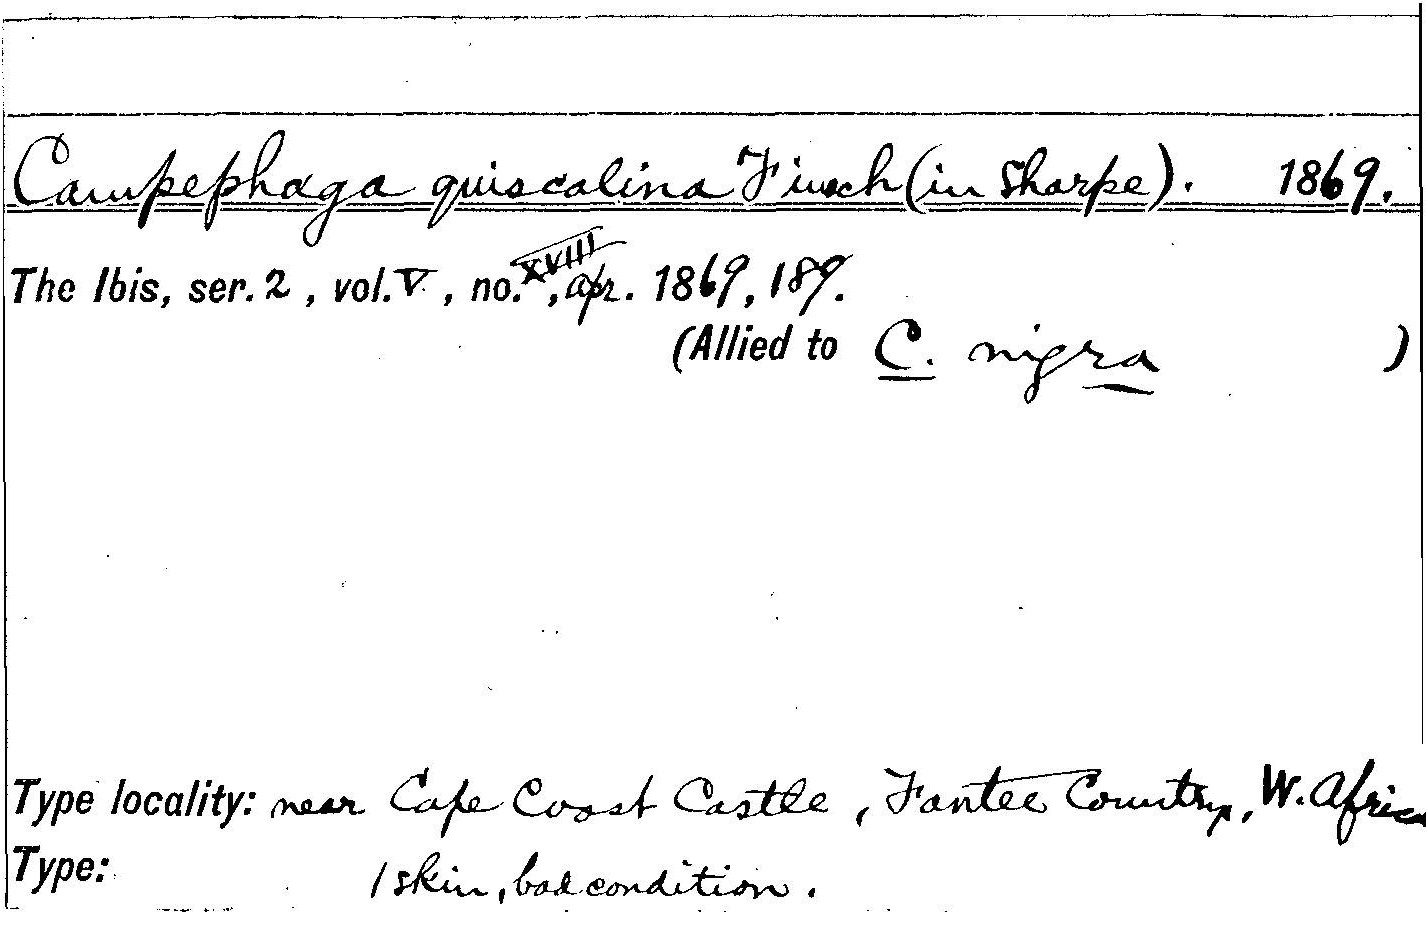 Campephaga quiscalina Finsch (in Sharpe). 1869.
The Ibis, ser. 2, vol. V, no. XVIII, apr. 1869, 189.
(Allied to C. nigra )
Type locality: near Cape Coast Castle, Fantee Country, W. Africa
Type: 1 skin, bad condition.